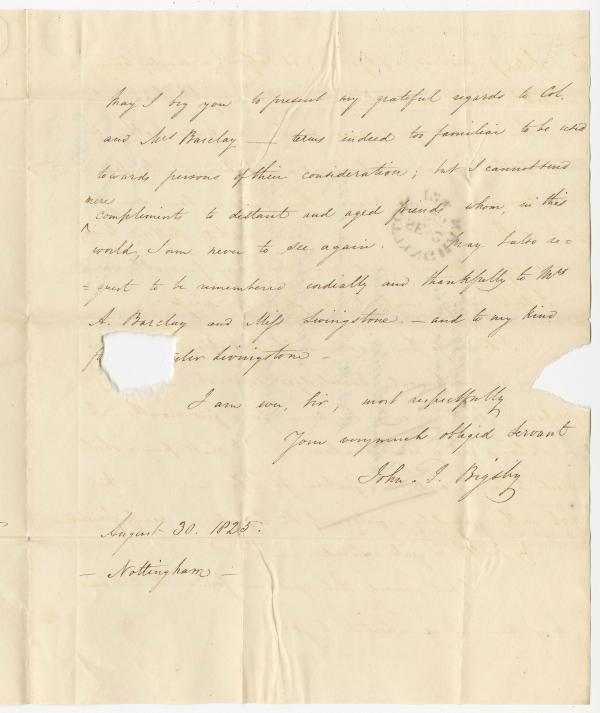 May I beg you to present my grateful regards to Col.
and Mrs Barclay — terms indeed too familiar to be used
towards persons of their consideration; but I cannot send
mere
compliments to distant and aged friends whom, in this
world, I am never to see again. May I also re=
=quest to be remembered cordially and thankfully to Mrs
A. Barclay and Miss Livingstone. — and to my kind
Livingstone —
I am ever, Sir, most respectfully
Your very much obliged Servant
John. J. Bigsby
August 30. 1825.
— Nottingham —